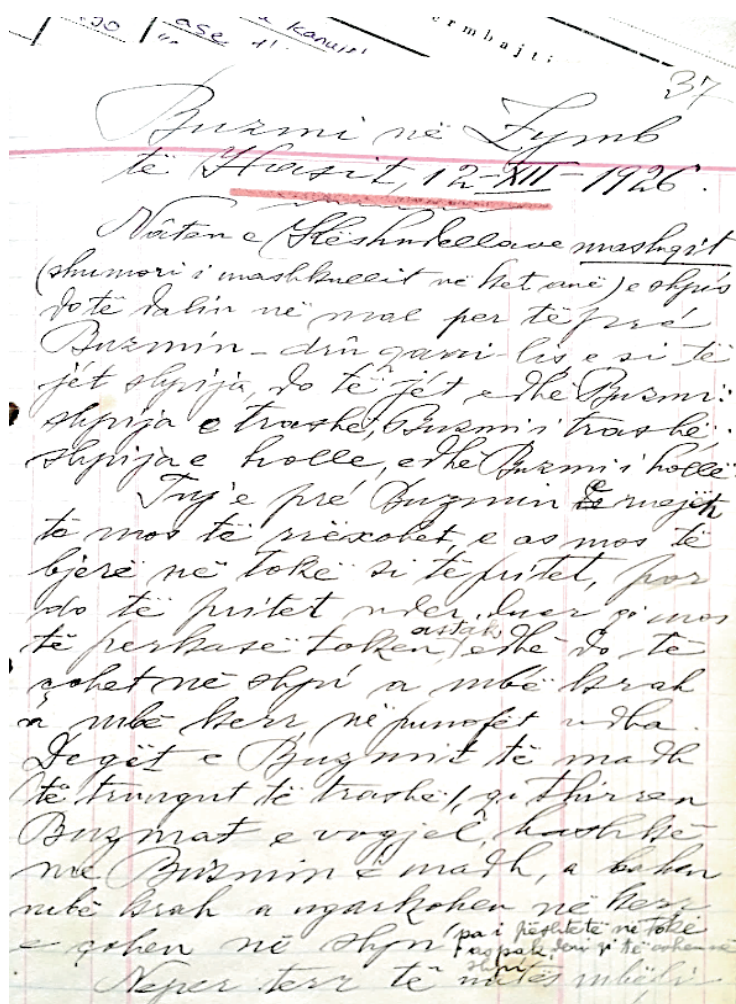 ase
Kanuni
ermbajti:
37
Buzmi në Zymb
të Hasit, 12-XII-1926.
Nâten e Kështndellave mashqit
(shumori i mashkullit në ket anë) e shpís
do të dalin në mal per të pré
Buzmin - drû qarri-lis, e si të
jét shpija, do të jét edhe Buzmi:
shpija e trashë, Buzmi i trashë;
shpija e hollë, edhe Buzmi i hollë.
Tuj e pré Buzmin e ruejn
të mos të rrëxohet, e as mos të
bjerë në tokë si të pritet, por
do të pritet nder duer qi mos
të perkasë token aspak, edhe do të
çohet në shpí a mbë krah
a mbë kerr, në punoftë udha.
Degët e Buzmit të madh
të trungut të trashë, qi thirren
Buzmat e vogjël, bashkë
me Buzmin e madh, a bahen
mbë krah a ngarkohen në kerr
e çohen në shpí pa i pështetë në tokë
aspak, deri qi të çohen në
shpí.
Neper terr të natës mbëdi-